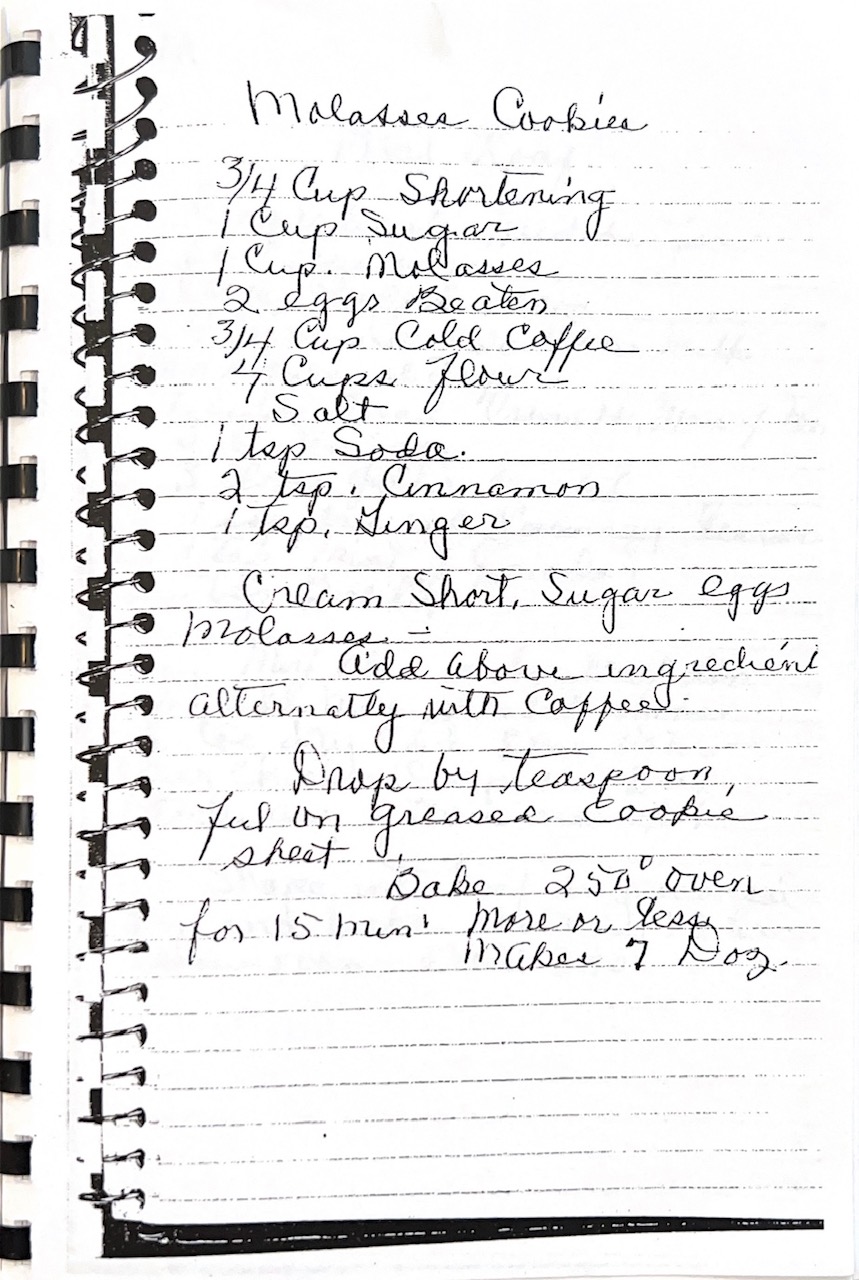 Molasses Cookies
3/4 Cup Shortening
1 Cup Sugar
1 Cup. Molasses
2 eggs Beaten
3/4 Cup Cold Coffee
4 Cups flour
Salt
1 tsp Soda.
2 tsp. Cinnamon
1 tsp. Ginger
Cream Short, Sugar eggs
Molasses -
add above ingredient
alternatly with Coffee.
Drop by teaspoon,
ful on greased Cookie
sheet
Bake 250° oven
for 15 min. more or less
Makes 7 Doz.